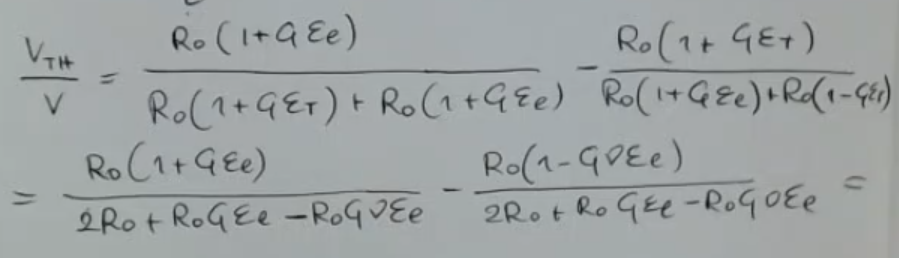 V_TH / V = R₀(1+GƐe) / R₀(1+GƐT) + R₀(1+GƐe) - R₀(1+GƐT) / R₀(1+GƐe)+R₀(1-GƐT)
= R₀(1+GƐe) / 2R₀+R₀GƐe-R₀GνƐe - R₀(1-GνƐe) / 2R₀+R₀GƐe-R₀GνƐe =